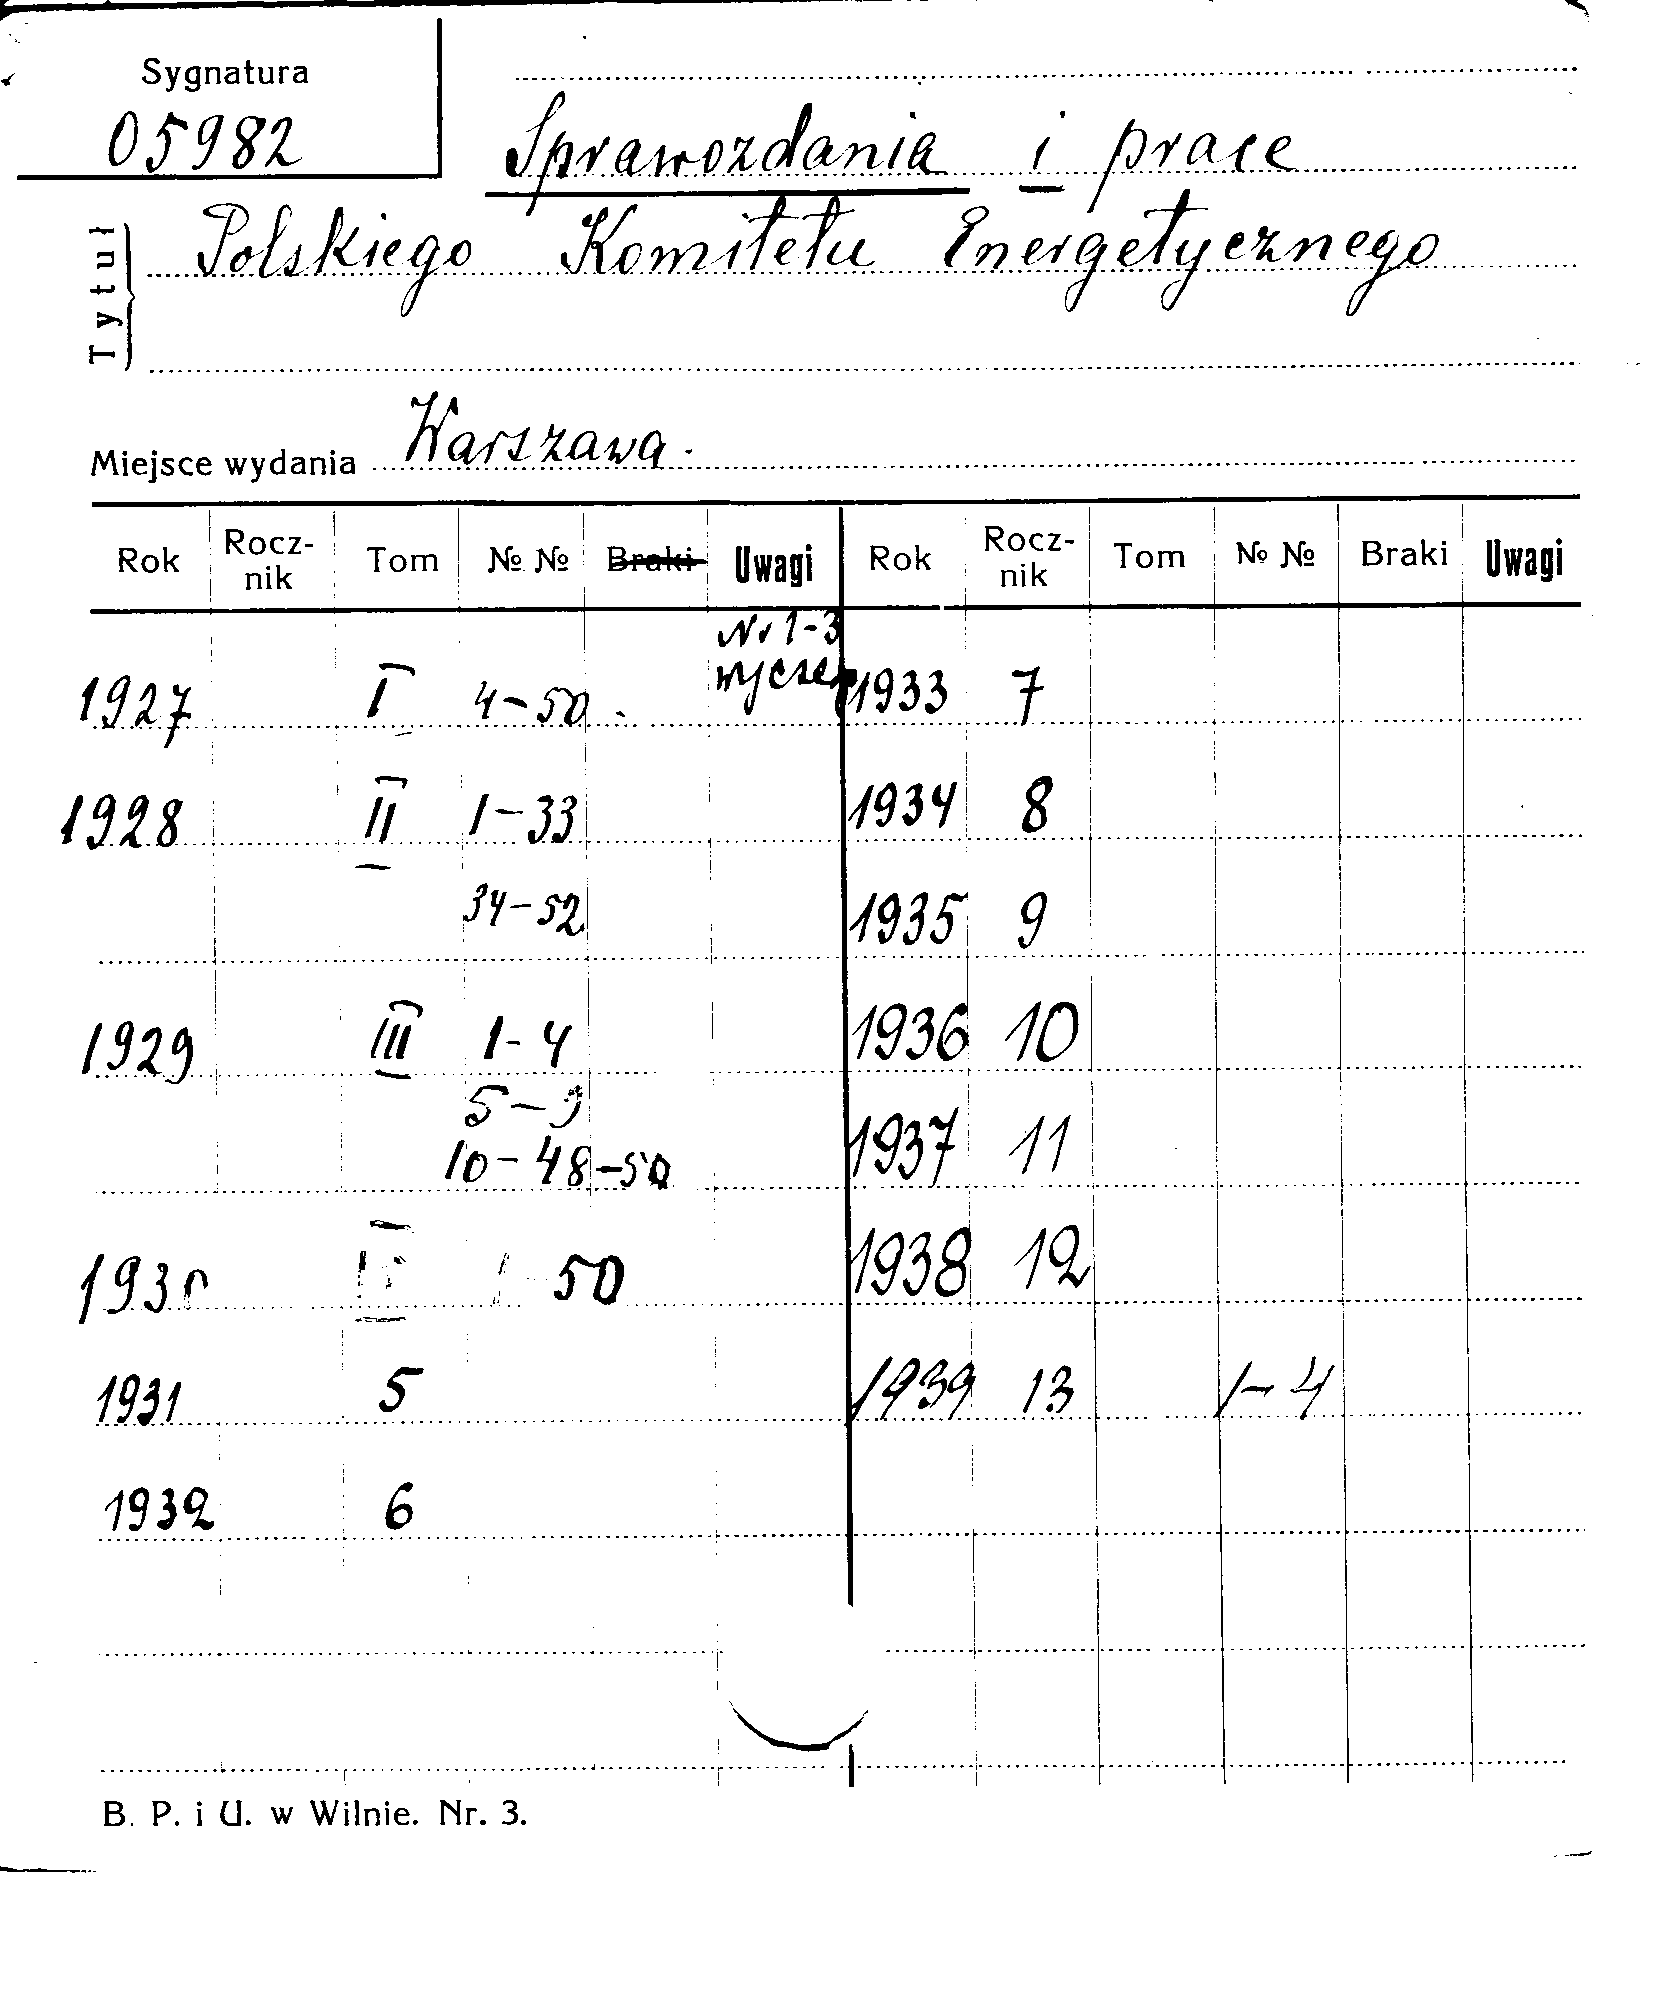 Sygnatura
05982
Sprawozdania i prace
Tytuł
Polskiego Komitetu Energetycznego
Miejsce wydania Warszawa.
Rok Rocz-nik Tom № № Braki Uwagi Rok Rocz-nik Tom № № Braki Uwagi
Nr 1-3
1927 I 4-50 wyczer 1933 7
1928 II 1-33 1934 8
34-52 1935 9
1929 III 1-4 1936 10
5-9
10-48-50 1937 11
1930 50 1938 12
1931 5 1939 13 1-4
1932 6
B. P. i U. w Wilnie. Nr. 3.